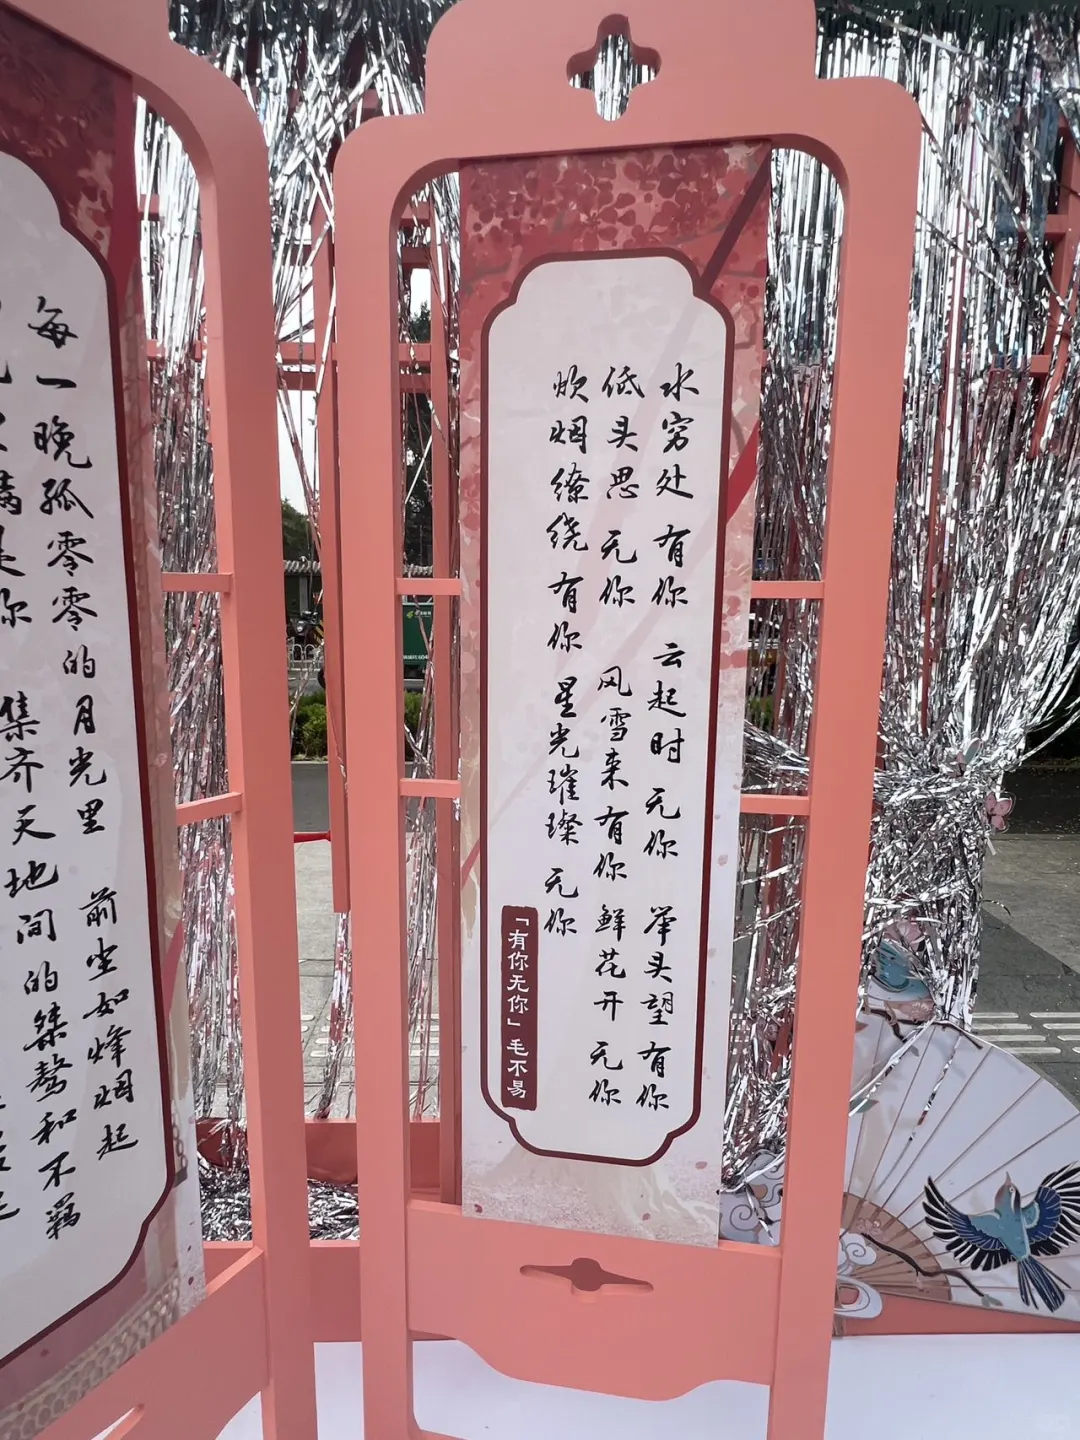 水穷处 有你 云起时 无你 举头望 有你
低头思 无你 风雪来 有你 鲜花开 无你
炊烟缭绕 有你 星光璀璨 无你
「有你无你」毛不易
每一晚孤零零的月光里 前尘如烽烟起
满是你 集齐天地间的桀骜和不羁